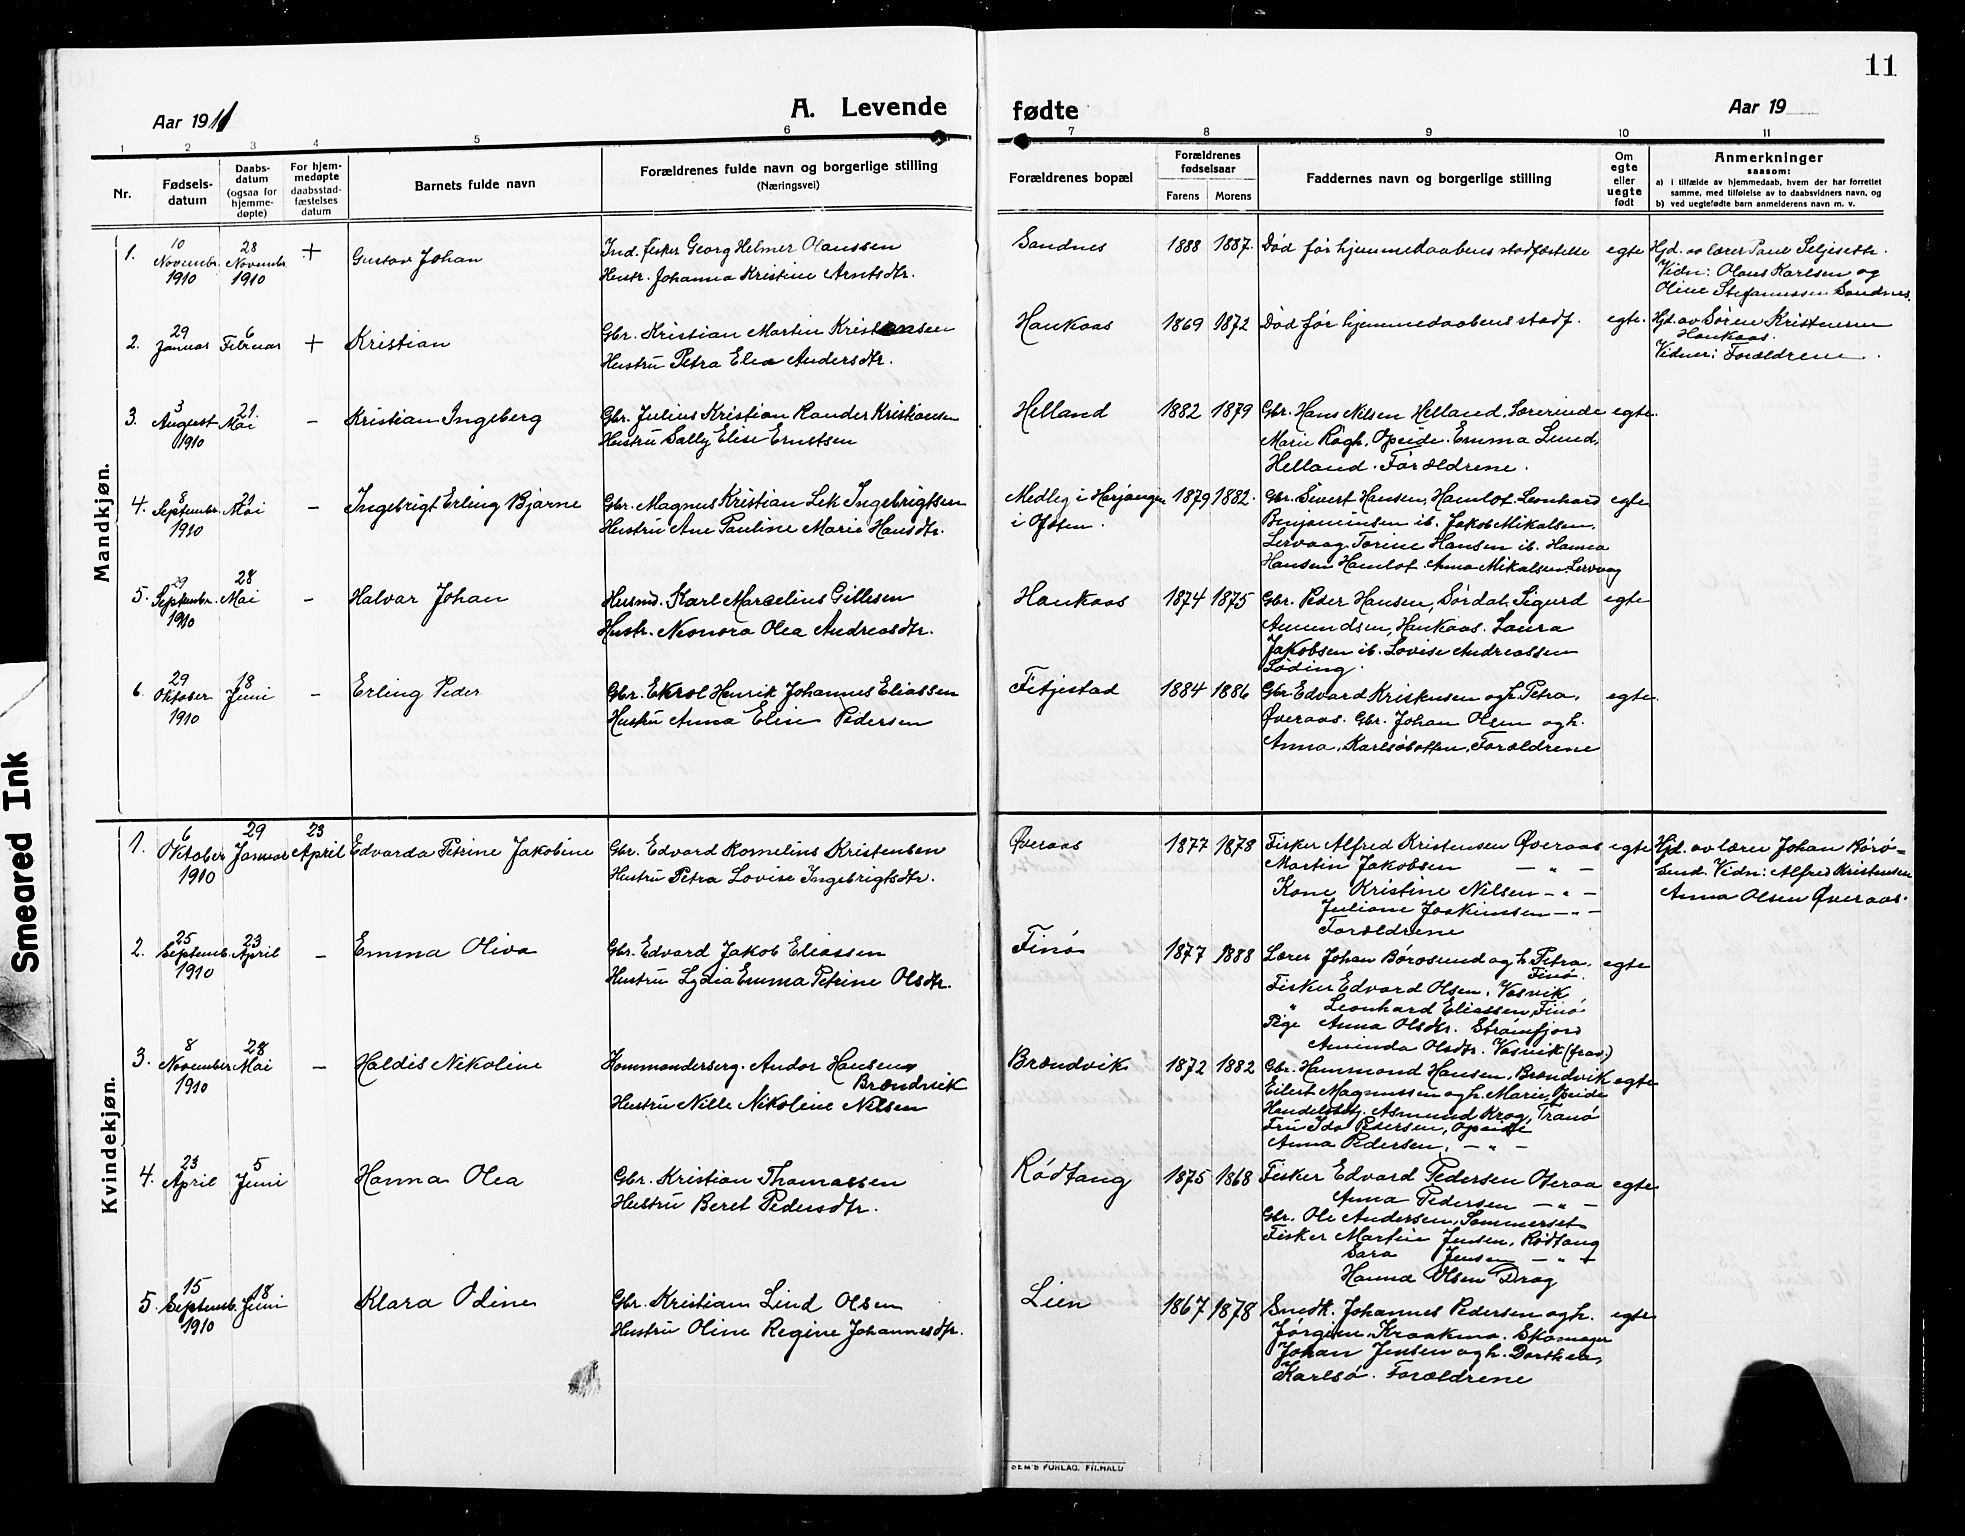 11
Aar 1911
A. Levende
fødte
Aar 19
1 2 3 4 5 6 7 8 9 10 11
Nr.
Fødsels-
datum
Daabs-
datum
(ogsaa for
hjemme-
døpte)
For hjem-
medøpte
daabsstad-
fæstelses
datum
Barnets fulde navn
Forældrenes fulde navn og borgerlige stilling
(Næringsvei)
Forældrenes bopæl
Forældrenes
fødselsaar
Farens Morens
Faddernes navn og borgerlige stilling
Om
egte
eller
uegte
født
Anmerkninger
saasom:
a) i tilfælde av hjemmedaab, hvem der har forrettet
samme, med tilføielse av to daabsvidners navn, og
b) ved uegtefødte barn anmelderens navn m. v.
Mandkjøn.
1. 10 Novembr. 1910 28 Novembr. 1910 + Gustav Johan
Ind. fisker Georg Helmer Olaussen
Hustr. Johanna Kristine Arntsdtr.
Sandnes 1888 1887. Død før hjemmedaabens stadfæstelse egte
Hjd. av lærer Paul Seljeseth.
Vidn: Olaus Karlsen og
Oline Stefanussen Sandnes.
2. 29 Januar 6 Februar + Kristian
Gbr. Kristian Martin Kristensen
Hustru Petra Elea Andersdtr.
Haukaas 1869 1872 Død før hjemmedaabens stadf. egte.
Hjd. av Søren Kristensen
Haukaas.
Vidner: Forældrene.
3. 3 August 1910 21. Mai - Kristian Ingeberg
Gbr. Julius Kristian Rander Kristiansen
Hustru Sally Elise Ernstsen
Helland 1882 1879 Gbr. Hans Nilsen Helland. Lærerinde egte.
Marie Røgh, Opeide. Emma Lund,
Helland. Forældrene.
4. 8 Septembr. 1910 21 Mai - Ingebrigt Erling Bjarne
Gbr. Magnus Kristian Lek Ingebrigtsen
Hustru Ane Pauline Marie Hansdtr.
Medleg i Herjangen 1879 1882. Gbr. Sivert Hansen, Hamlot. Leonhard egte
i Ofoten.
Benjaminsen ib. Jakob Mikalsen,
Lervaag. Torine Hansen ib. Hanna
Hansen Hamlot. Anna Mikalsen Lervaag
5. 29 Septembr. 1910 28 Mai - Halvar Johan
Husmd. Karl Marcelius Gillesen
Hustr. Neonora Olea Andreasdtr.
Haukaas 1874 1875 Gbr. Peder Hansen, Sørdal. Sigurd egte
Amundsen, Haukaas. Laura
Jakobsen ib. Lovise Andreassen
Løding.
6. 29 Oktober 1910 18 Juni - Erling Peder
Gbr. Ekrol Henrik Johannes Eliassen
Hustru Anna Elise Pedersen
Fitjestad 1884 1886 Gbr. Edvard Kristensen og h. Petra, egte.
Øveraas. Gbr. Johan Olsen og h.
Anna, Karlsøbotten. Forældrene
Kvindekjøn.
1. 6 Oktober 1910 29 Januar 23 April Edvarda Petrine Jakobine
Gbr. Edvard Kornelius Kristensen
Hustru Petra Lovise Ingebrigtsdtr.
Øveraas 1877 1878 Fisker Alfred Kristensen Øveraas egte
Martin Jakobsen — " —
Kone Kristine Nilsen — " —
Juliane Joakimsen — " —
Forældrene
Hjd. av lærer Johan Børø-
sund. Vidn: Alfred Kristensen
Anna Olsen Øveraas.
2. 25 Septemb. 1910 23 April - Emma Oliva
Gbr. Edvard Jakob Eliassen
Hustru Lydia Emma Petrine Olsdtr.
Finnø 1877 1888 Lærer Johan Børosund og h. Petra, egte
Finø.
Fisker Edvard Olsen, Vasvik
" Leonhard Eliassen, Finø
Pige Anna Olsdtr. Strømfjord
Aminda Olsdtr. Vasvik (frav.)
3. 8 November 1910 28 Mai - Haldis Nikoline
Kommanderserg. Andor Hansen
Brændvik
Hustru Nille Nikoline Nilsen
Brændvik 1872 1882 Gbr. Hammond Hansen, Brændvik egte
Eilert Magnussen og h. Marie, Opeide
Handelsbetj. Asmund Krog, Tranø
Fru Ida Pedersen, Opeide
Anna Pedersen, — " —
4. 23 April 5 Juni Hanna Olea
Gbr. Kristian Thomassen
Hustru Beret Pedersdtr.
Rødtang 1875 1868 Fisker Edvard Pedersen Oteraa egte
Anna Pedersen — " —
Gbr. Ole Andersen, Sommerset
Fisker Martin Jensen, Rødtang
Sara Jensen — " —
Hanna Olsen Drag
5. 15 Septemb. 1910 18 Juni Klara Odine
Gbr. Kristian Lind Olsen
Hustru Oline Regine Johannesdtr.
Lien 1867 1878 Smedk. Johannes Pedersen og h. egte
Jørgine, Kraakmo. Skomager
Johan Jensen og h. Dorthea,
Karlsø. Forældrene
SEM'S FORLAG, FR.HALD
Smeared Ink